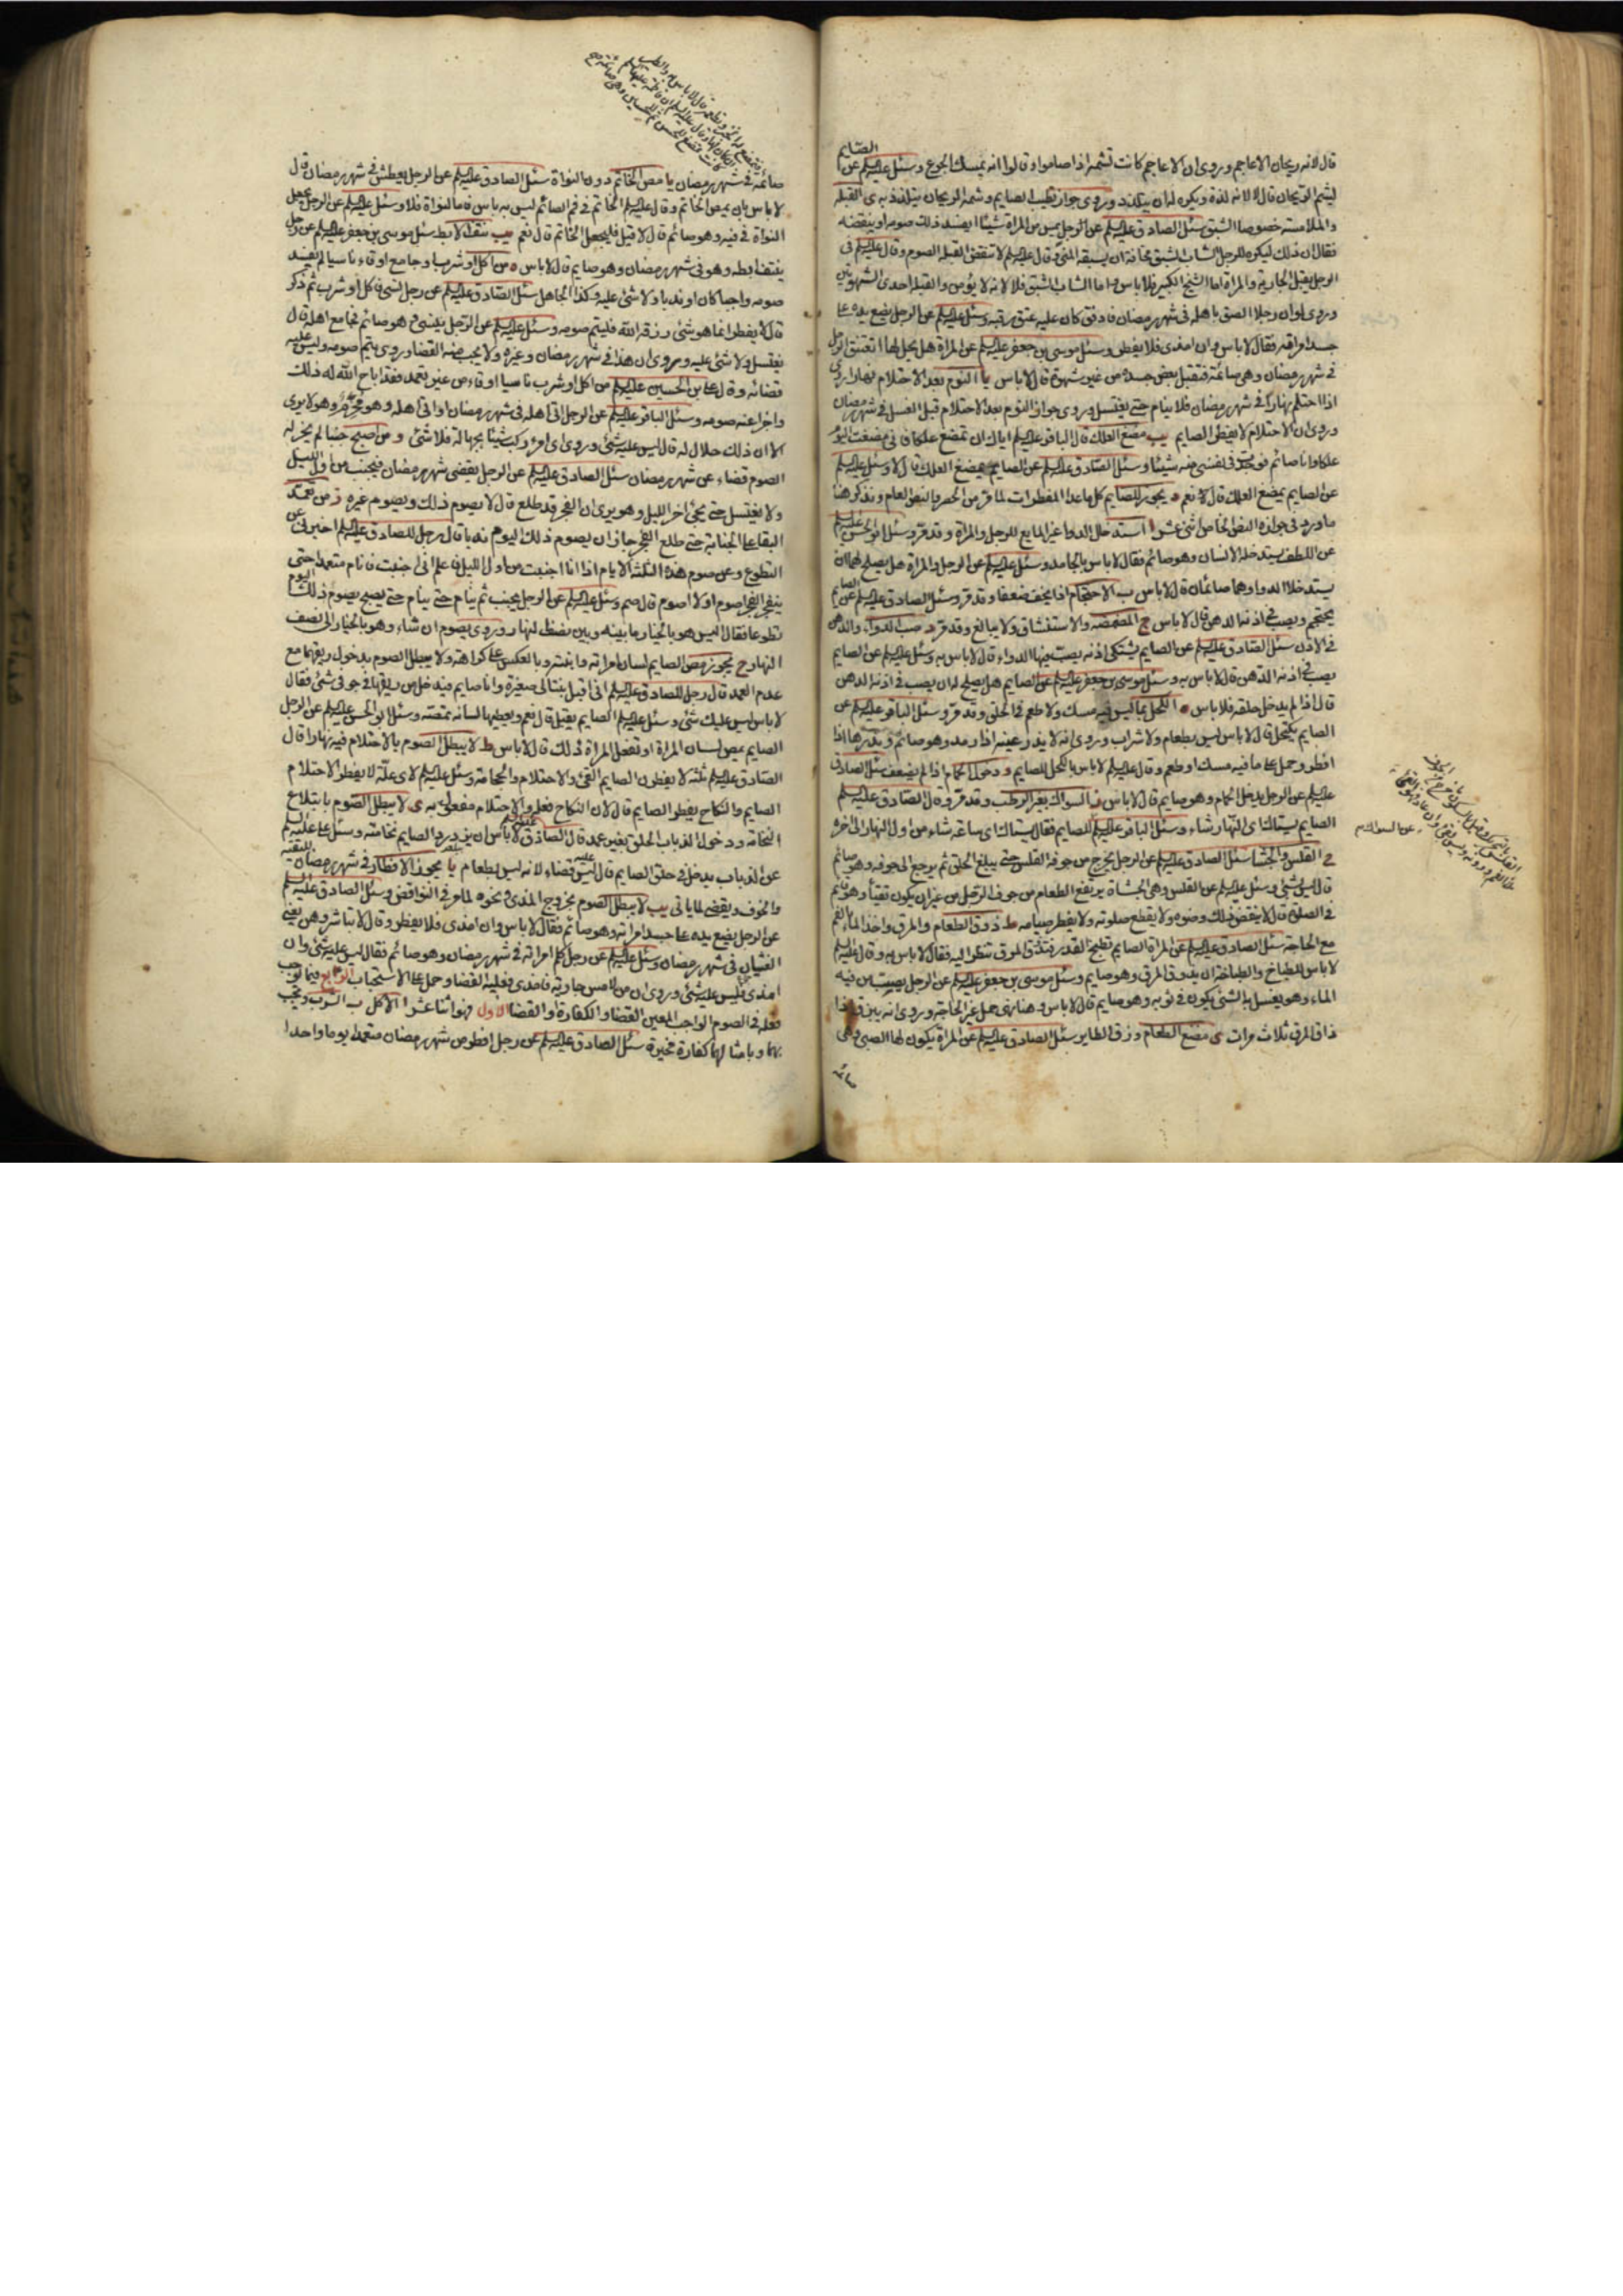 قال لانه ريحان الاعاجم وروى ان الاعاجم كانت تشمه اذا صاموا وقالوا انه يمسك الجوع وسئل عليه السلم عن الصايم
ليشم الريحان قال لا لانه لذة ويكره له ان يتلذذ وروى جواز تطيب الصايم وشمه الريحان يتلذذ به ى القبلة
والملامسة خصوصا الشبق سئل الصادق عليه السلم عن الرجل يمس من المراة شيئا ايفسد ذلك صومه او ينقضه
فقال ان ذلك ليكره للرجل الشاب الشبق مخافة ان يسبقه المنى وقال عليه السلم لا تنقض القبلة الصوم وقال عليه السلم فى
الرجل يقبل الجارية والمراة اما الشيخ الكبير فلا باس واما الشاب الشبق فلا لانه لا يؤمن والقبلة احدى الشهوتين
وروى لو ان رجلا الصق باهله فى شهر رمضان فادفق كان عليه عتق رقبة وسئل عليه السلم عن الرجل يضع يده على
جسد امراته فقال لا باس وان امذى فلا يفطر وسئل موسى بن جعفر عليه السلم عن المراة هل يحل لها ان تعتنق الرجل
فى شهر رمضان وهى صائمة فتقبل بعض جسده من غير شهوة قال لا باس يا النوم بعد الاحتلام نهارا روى
اذا احتلم نهارا فى شهر رمضان فلا ينام حتى يغتسل وروى جواز النوم بعد الاحتلام قبل الغسل فى شهر رمضان
وروى ان الاحتلام لا يفطر الصايم يب مضغ العلك قال الباقر عليه السلم اياك ان تمضغ علكا فانى مضغت اليوم
علكا وانا صائم فوجدت فى نفسى منه شيئا وسئل الصادق عليه السلم عن الصايم يمضغ العلك قال لا وسئل عليه السلم
عن الصايم يمضغ العلك قال نعم د يجوز للصايم كلما عدا المفطرات لما مر من الحصر والنص العام ونذكر هنا
ما ورد فى جوازه النص الخاص اثنى عشر ا استدخال الدوا غير المايع للرجل والمراة وقد مر وسئل ابو الحسن عليه السلم
عن اللطف يستدخله الانسان وهو صائم فقال لا باس بالجامد وسئل عليه السلم عن الرجل والمراة هل يصلح لهما ان
يستدخلا الدوا وهما صائمان قال لا باس ب الاحتجام اذا لم يخف ضعفا وقد مر وسئل الصادق عليه السلم عن الصايم
يحتجم ويصب فى اذنه الدهن قال لا باس ج المضمضة والاستنشاق ولا يبالغ وقد مر د صب الدواء والدهن
فى الاذن سئل الصادق عليه السلم عن الصايم يشتكى اذنه يصب فيها الدواء قال لا باس به وسئل عليه السلم عن الصايم
يصب فى اذنه الدهن قال لا باس به وسئل موسى بن جعفر عليه السلم عن الصايم هل يصلح له ان يصب فى اذنه الدهن
قال اذا لم يدخل حلقه فلا باس ه الكحل بما ليس فيه مسك ولا طعم فى الحلق وقد مر وسئل الباقر عليه السلم عن
الصايم يكتحل قال لا باس ليس بطعام ولا شراب وروى انه لا يذر عينه اذا رمد وهو صائم ويذرها اذا
افطر وحمل على ما فيه مسك او طعم وقال عليه السلم لا باس بالكحل للصايم و دخول الحمام اذا لم يضعف سئل الصادق
عليه السلم عن الرجل يدخل الحمام وهو صايم قال لا باس ز السواك بغير الرطب وقد مر وقال الصادق عليه السلم
الصايم يستاك اى النهار شاء وسئل الباقر عليه السلم للصايم فقال يستاك اى ساعة شاء من اول النهار الى اخره
ح القلس والجشا سئل الصادق عليه السلم عن الرجل يخرج من جوفه القلس حتى يبلغ الحلق ثم يرجع الى جوفه وهو صائم
قال ليس بشئ وسئل عليه السلم عن القلس وهى الجشاة يرتفع الطعام من جوف الرجل من غير ان يكون تقيأ وهو قائم
فى الصلوة قال لا ينقض ذلك وضوءه ولا يقطع صلوته ولا يفطر صيامه ط ذوق الطعام والمرق واخذ الماء بالفم
مع الحاجة سئل الصادق عليه السلم عن المراة الصايم تطبخ القدر فتذوق المرق تنظر اليه فقال لا باس به وقال عليه السلم
لا باس للطباخ والطباخة ان يذوق المرق وهو صايم وسئل موسى بن جعفر عليه السلم عن الرجل يصب من فيه
الماء وهو يغسل به الشئ يكون فى ثوبه وهو صايم قال لا باس وهنا نهى حمل على غير الحاجة وروى انه يبزق اذا
ذاق المرق ثلاث مرات ى مضغ الطعام وزق الطاير سئل الصادق عليه السلم عن المراة يكون لها الصبى وهى
صائمة
صائمة فى شهر رمضان يا مص الخاتم دون النواة سئل الصادق عليه السلم عن الرجل يعطش فى شهر رمضان قال
لا باس بان يمص الخاتم وقال عليه السلم الخاتم فى فم الصائم ليس به باس فاما النواة فلا وسئل عليه السلم عن الرجل يجعل
النواة فى فيه وهو صائم قال لا قيل فيجعل الخاتم قال نعم يب نتف الابط سئل موسى بن جعفر عليه السلم عن رجل
ينتف ابطه وهو فى شهر رمضان وهو صايم قال لا باس ه من اكل او شرب او جامع او قاء ناسيا لم يفسد
صومه واجبا كان او ندبا ولا شئ عليه وكذا الجاهل سئل الصادق عليه السلم عن رجل نسى فاكل او شرب ثم ذكر
قال لا يفطر انما هو شئ رزقه الله فليتم صومه وسئل عليه السلم عن الرجل ينسى وهو صائم فجامع اهله قال
يغتسل ولا شئ عليه وروى ان هذا فى شهر رمضان وغيره ولا يجب منه القضا وروى يتم صومه وليس عليه
قضائه وقال على بن الحسين عليه السلم من اكل او شرب ناسيا او قاء من غير تعمد فقد اباح الله له ذلك
واجزا عنه صومه وسئل الباقر عليه السلم عن الرجل اتى اهله فى شهر رمضان او اتى اهله وهو محرم وهو لا يرى
الا ان ذلك حلال له قال ليس عليه شئ وروى اى امرء ركب شيئا بجهالة فلا شئ و من اصبح جنبا لم يجز له
الصوم قضاء عن شهر رمضان سئل الصادق عليه السلم عن الرجل يقضى شهر رمضان فيجنب من اول الليل
ولا يغتسل حتى يجئ اخر الليل وهو يرى ان الفجر قد طلع قال لا يصوم ذلك ويصوم غيره ز من تعمد
البقا على الجنابة حتى طلع الفجر جاز ان يصوم ذلك اليوم ندبا قال رجل للصادق عليه السلم اخبرنى عن
التطوع وعن صوم هذه الثلثة الايام اذا انا اجنبت من اول الليل فاعلم انى اجنبت فانام متعمدا حتى
ينفجر الفجر اصوم او لا اصوم قال صم وسئل عليه السلم عن الرجل يجنب ثم ينام حتى يصبح يصوم ذلك اليوم
تطوعا فقال اليس هو بالخيار ما بينه وبين نصف النهار وروى يصوم ان شاء وهو بالخيار الى نصف
النهار ح يجوز مص الصايم لسان امراته وابنته وبالعكس على كراهة ولا يبطل الصوم بدخول ريقهما مع
عدم العمد قال رجل للصادق عليه السلم انى اقبل بنتا لى صغيرة وانا صايم فيدخل من ريقها فى جوفى شئ فقال
لا باس ليس عليك شئ وسئل عليه السلم الصايم يقبل قال نعم ويعطيها لسانه تمصه وسئل ابو الحسن عليه السلم عن الرجل
الصايم يمص لسان المراة او تفعل المراة ذلك قال لا باس ط لا يبطل الصوم بالاحتلام فيه نهارا قال
الصادق عليه السلم ثلثة لا يفطرن الصايم القئ والاحتلام والحجامة وسئل عليه السلم لاى علة لا يفطر الاحتلام
الصايم والنكاح يفطر الصايم قال لان النكاح فعله والاحتلام مفعول به ى لا يبطل الصوم بابتلاع
النخامة ودخول الذباب الحلق بغير عمد قال الصادق عليه السلم لا باس ان يزدرد الصايم نخامته وسئل على عليه السلم
عن الذباب يدخل فى حلق الصايم قال ليس عليه قضاء لانه ليس بطعام يا يجوز الافطار فى شهر رمضان للتقية
والخوف ويقضى لما ياتى يب لا يبطل الصوم بخروج المذى ونحوه لما مر فى النواقض وسئل الصادق عليه السلم
عن الرجل يضع يده على جسد امراته وهو صائم فقال لا باس وان امذى فلا يفطر وقال لا تباشروهن يعنى
الغشيان فى شهر رمضان وسئل عليه السلم عن رجل كلم امراته فى شهر رمضان وهو صائم فقال ليس عليه شئ وان
امذى فليس عليه شئ وروى ان من لامس جاريته فامذى فعليه القضا وحمل على الاستحباب الرابع فيما يوجب
فعله فى الصوم الواجب المعين القضا والكفارة او القضا الاول فهو اثنا عشر ا الاكل ب الشرب ويجب
بهما وبامثالهما كفارة مخيرة سئل الصادق عليه السلم عن رجل افطر من شهر رمضان متعمدا يوما واحدا